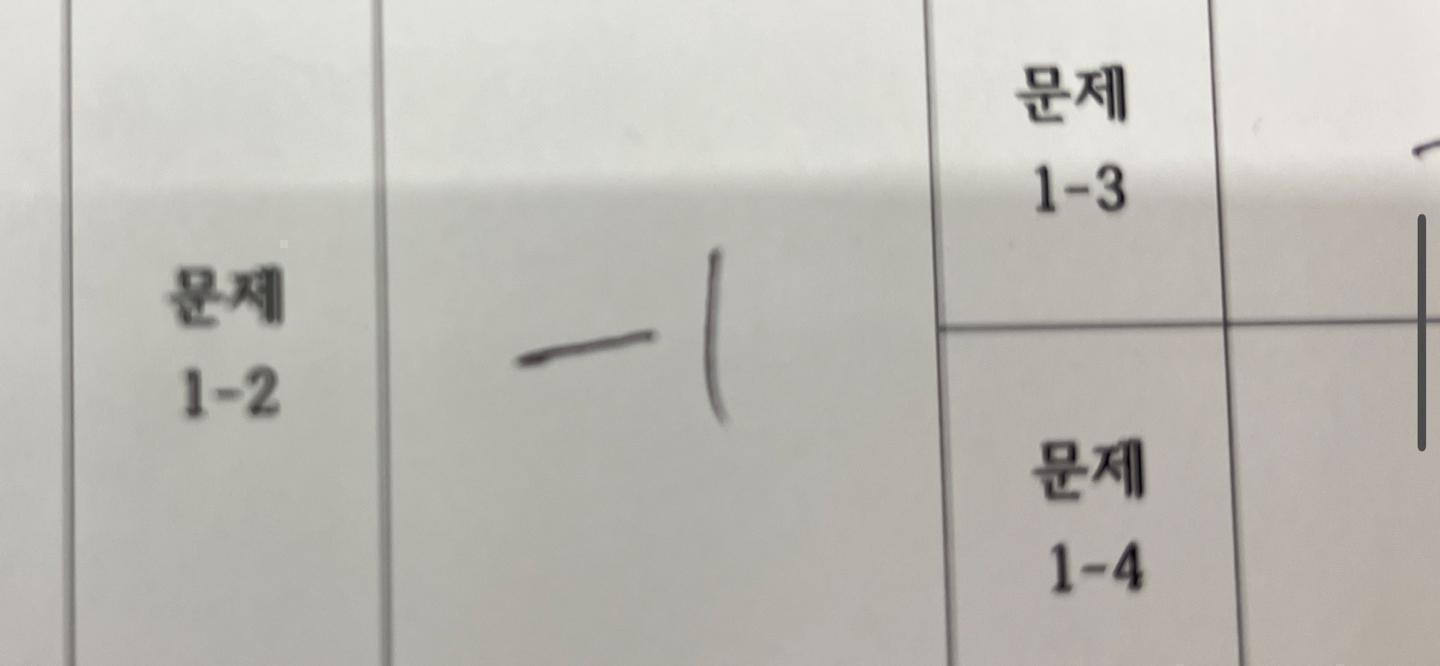 문제
1-2
-1
문제
1-3
문제
1-4